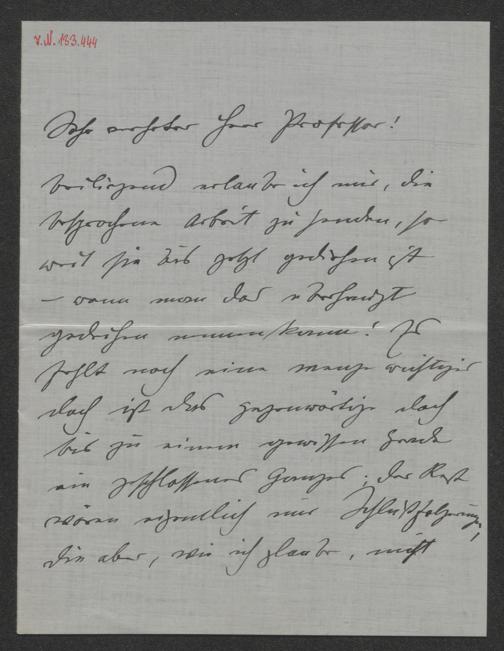 I.N. 183.444
Sehr verehrter Herr Professor!
beiliegend erlaube ich mir, die
besprochene Arbeit zu senden, so
weit sie bis jetzt gediehen ist
– wenn man das überhaupt
gediehen nennen kann! Es
fehlt noch eine menge wichtiges
doch ist das gegenwärtige doch
bis zu einem gewissen Grade
ein geschlossenes Ganzes; der Rest
wären eigentlich nur Schlußfolgerungen,
die aber, wie ich glaube, nicht